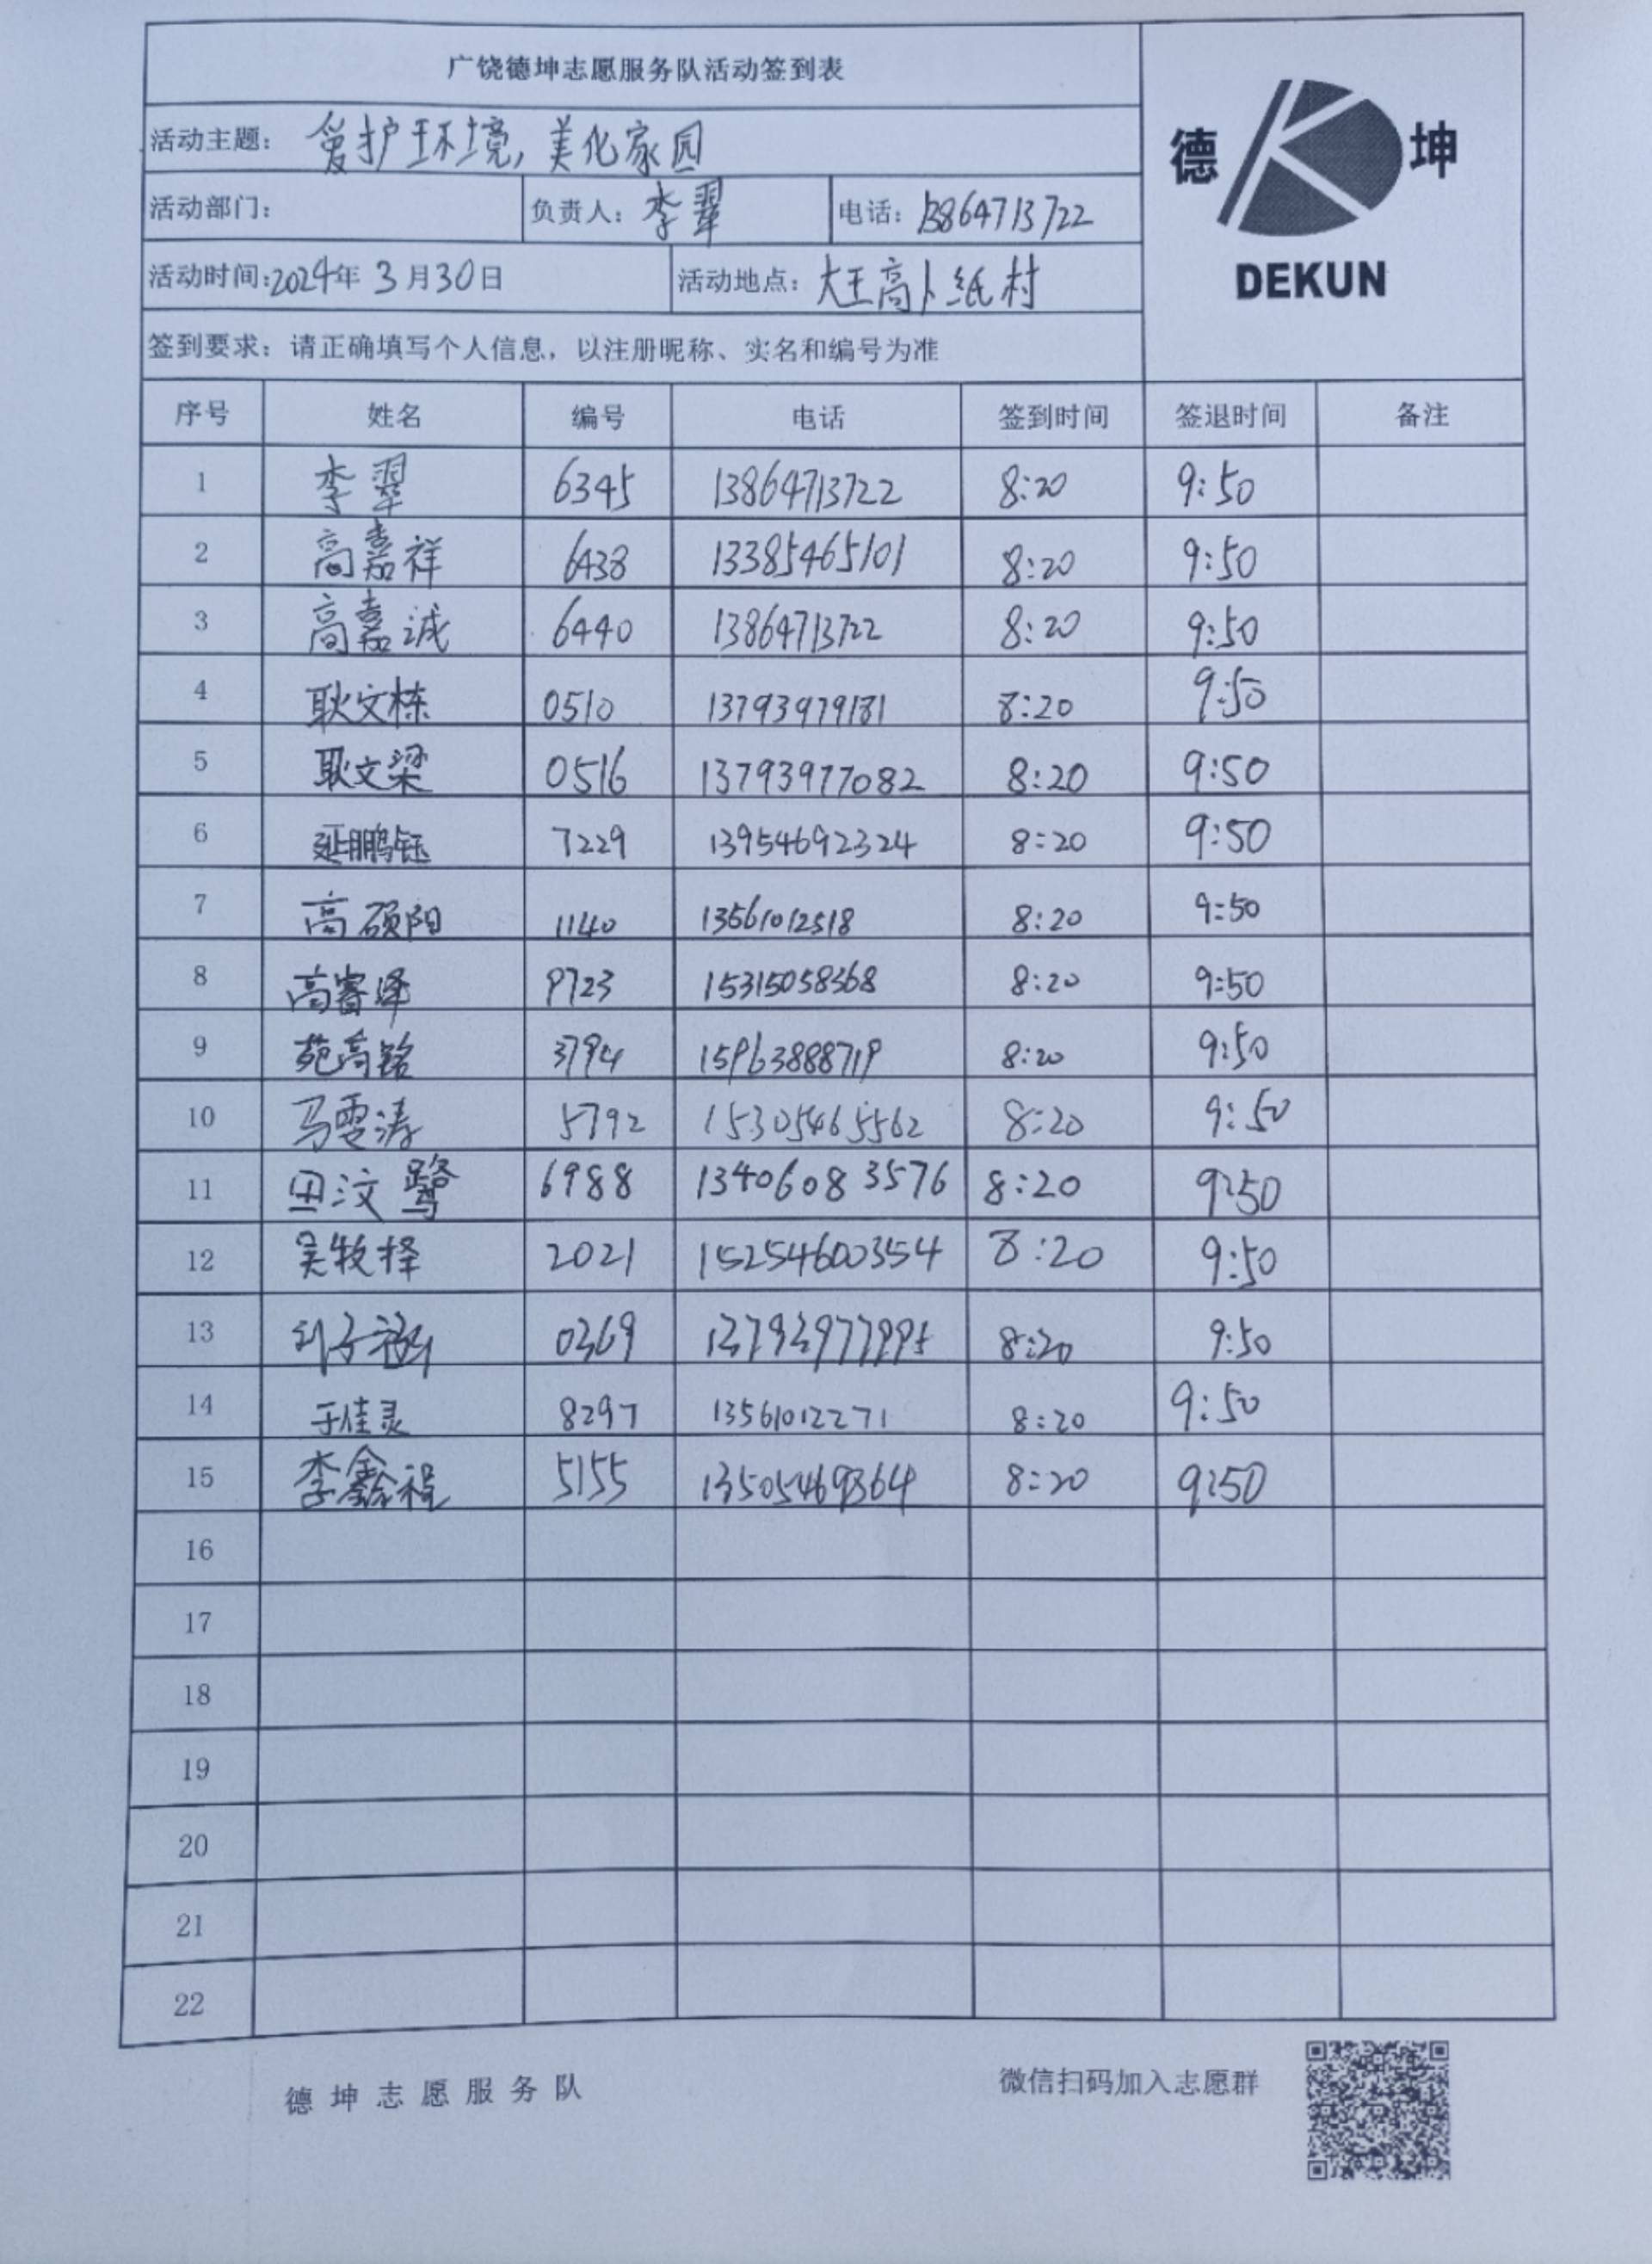 广饶德坤志愿服务队活动签到表
德 坤
DEKUN
活动主题： 爱护环境，美化家园
活动部门： 负责人：李翠 电话：13864713722
活动时间：2024年3月30日 活动地点：大王高卜纸村
签到要求：请正确填写个人信息，以注册昵称、实名和编号为准
序号 姓名 编号 电话 签到时间 签退时间 备注
1 李翠 6345 13864713722 8:20 9:50
2 高嘉祥 6438 13385465101 8:20 9:50
3 高嘉诚 6440 13864713722 8:20 9:50
4 耿文栋 0510 13793979181 8:20 9:50
5 耿文梁 0516 13793977082 8:20 9:50
6 延鹏钰 7229 13954692324 8:20 9:50
7 高硕阳 1140 13561012518 8:20 9:50
8 高睿泽 9723 15315058368 8:20 9:50
9 苑高铭 3794 15963888719 8:20 9:50
10 马雯涛 5792 15305465562 8:20 9:50
11 田汶鹭 6988 13406083576 8:20 9:50
12 吴牧择 2021 15254600354 8:20 9:50
13 0369 8:20 9:50
14 于佳灵 8297 13561012271 8:20 9:50
15 李鑫程 5155 13505469364 8:20 9:50
16
17
18
19
20
21
22
德坤志愿服务队 微信扫码加入志愿群